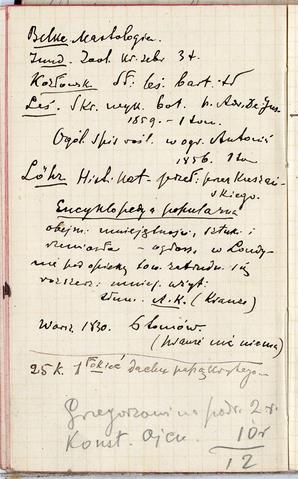 Belke. Mastologia.
Jund. Zool. kr. zebr. 3 t.
Kozłowsk. Sł. leś. bart.
Leś. Skr. wyk. bot. p. Adr. De Jus.
1859. – 1 tom.
Ogól. spis rośl. w ogr. Antoniń
1856. 1 tom
Löhr Hist. nat. przeł. przez Kuszań-
skiego.
Encyklopedya popularna
obejm. umiejętności, sztuki i
rzemiosła – ogłosz. w Londy-
nie pod opieką tow. zatrudn. się
rozszerz. umiej. użyt.
tłum. A. K. (Krauze)
Warsz. 1830. 6 tomów.
(prawie nic niema)
25 k. 1 łokieć dachu
Grzegorzowi na podr. 2 r.
Konst. Ojcu. 10 r
12